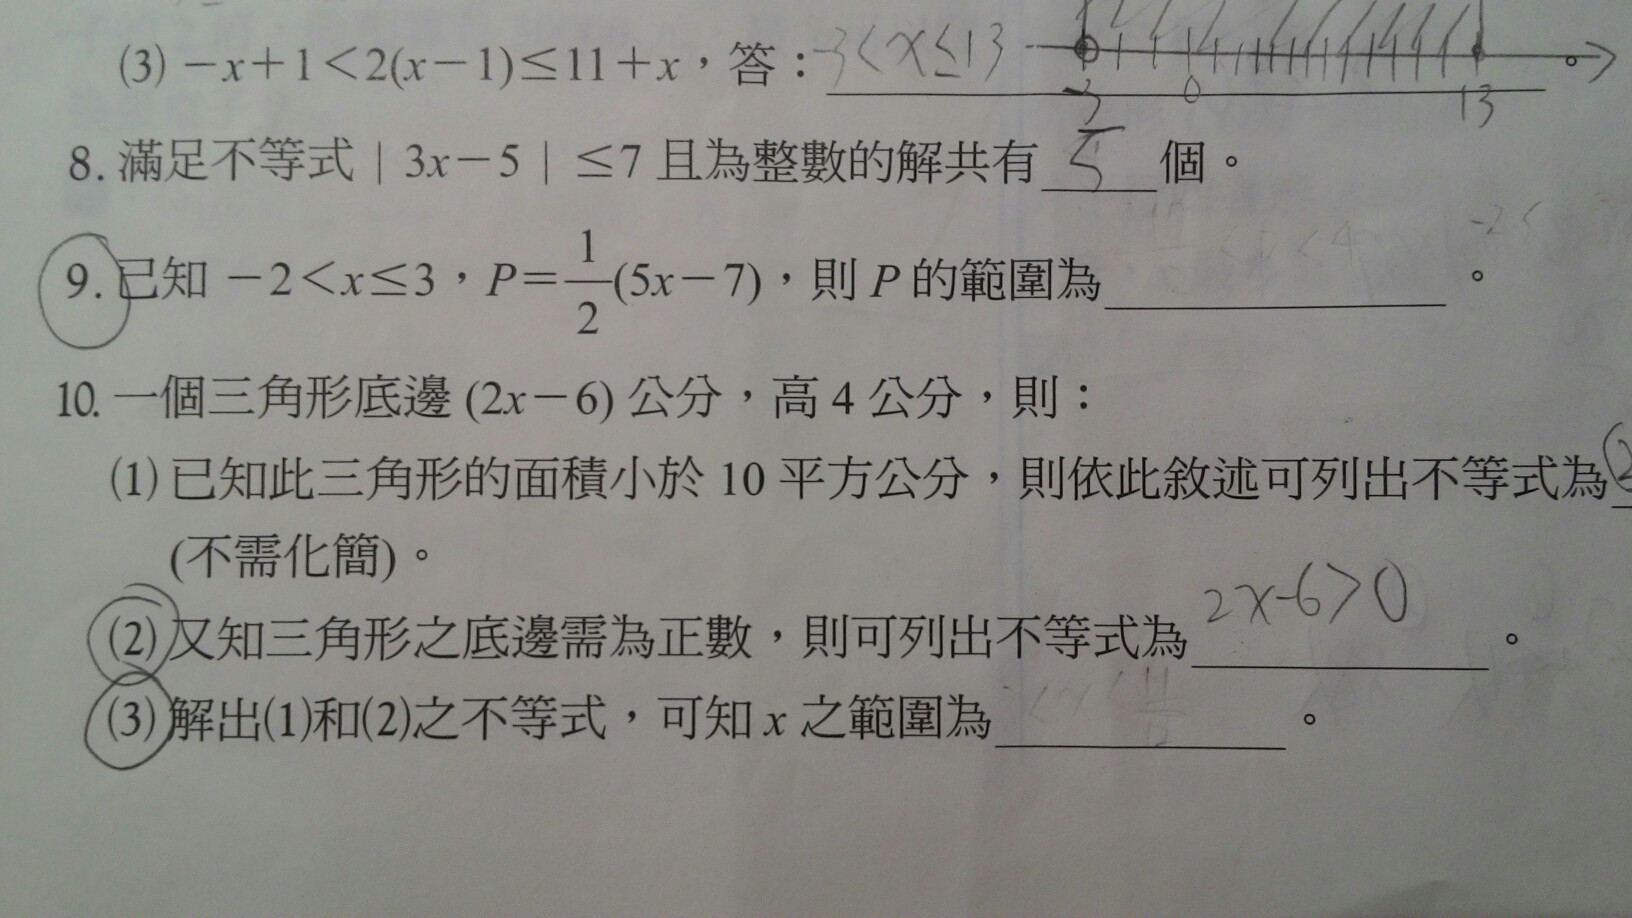 (3) －x＋1＜2(x－1)≤11＋x，答：-3<x≤13 。
-3 0 13
8. 滿足不等式 | 3x－5 | ≤7 且為整數的解共有 5 個。
9. 已知 －2＜x≤3，P＝1/2(5x－7)，則 P 的範圍為 。
10. 一個三角形底邊 (2x－6) 公分，高 4 公分，則：
(1) 已知此三角形的面積小於 10 平方公分，則依此敘述可列出不等式為
(不需化簡)。
(2) 又知三角形之底邊需為正數，則可列出不等式為 2x-6>0 。
(3) 解出(1)和(2)之不等式，可知 x 之範圍為 。